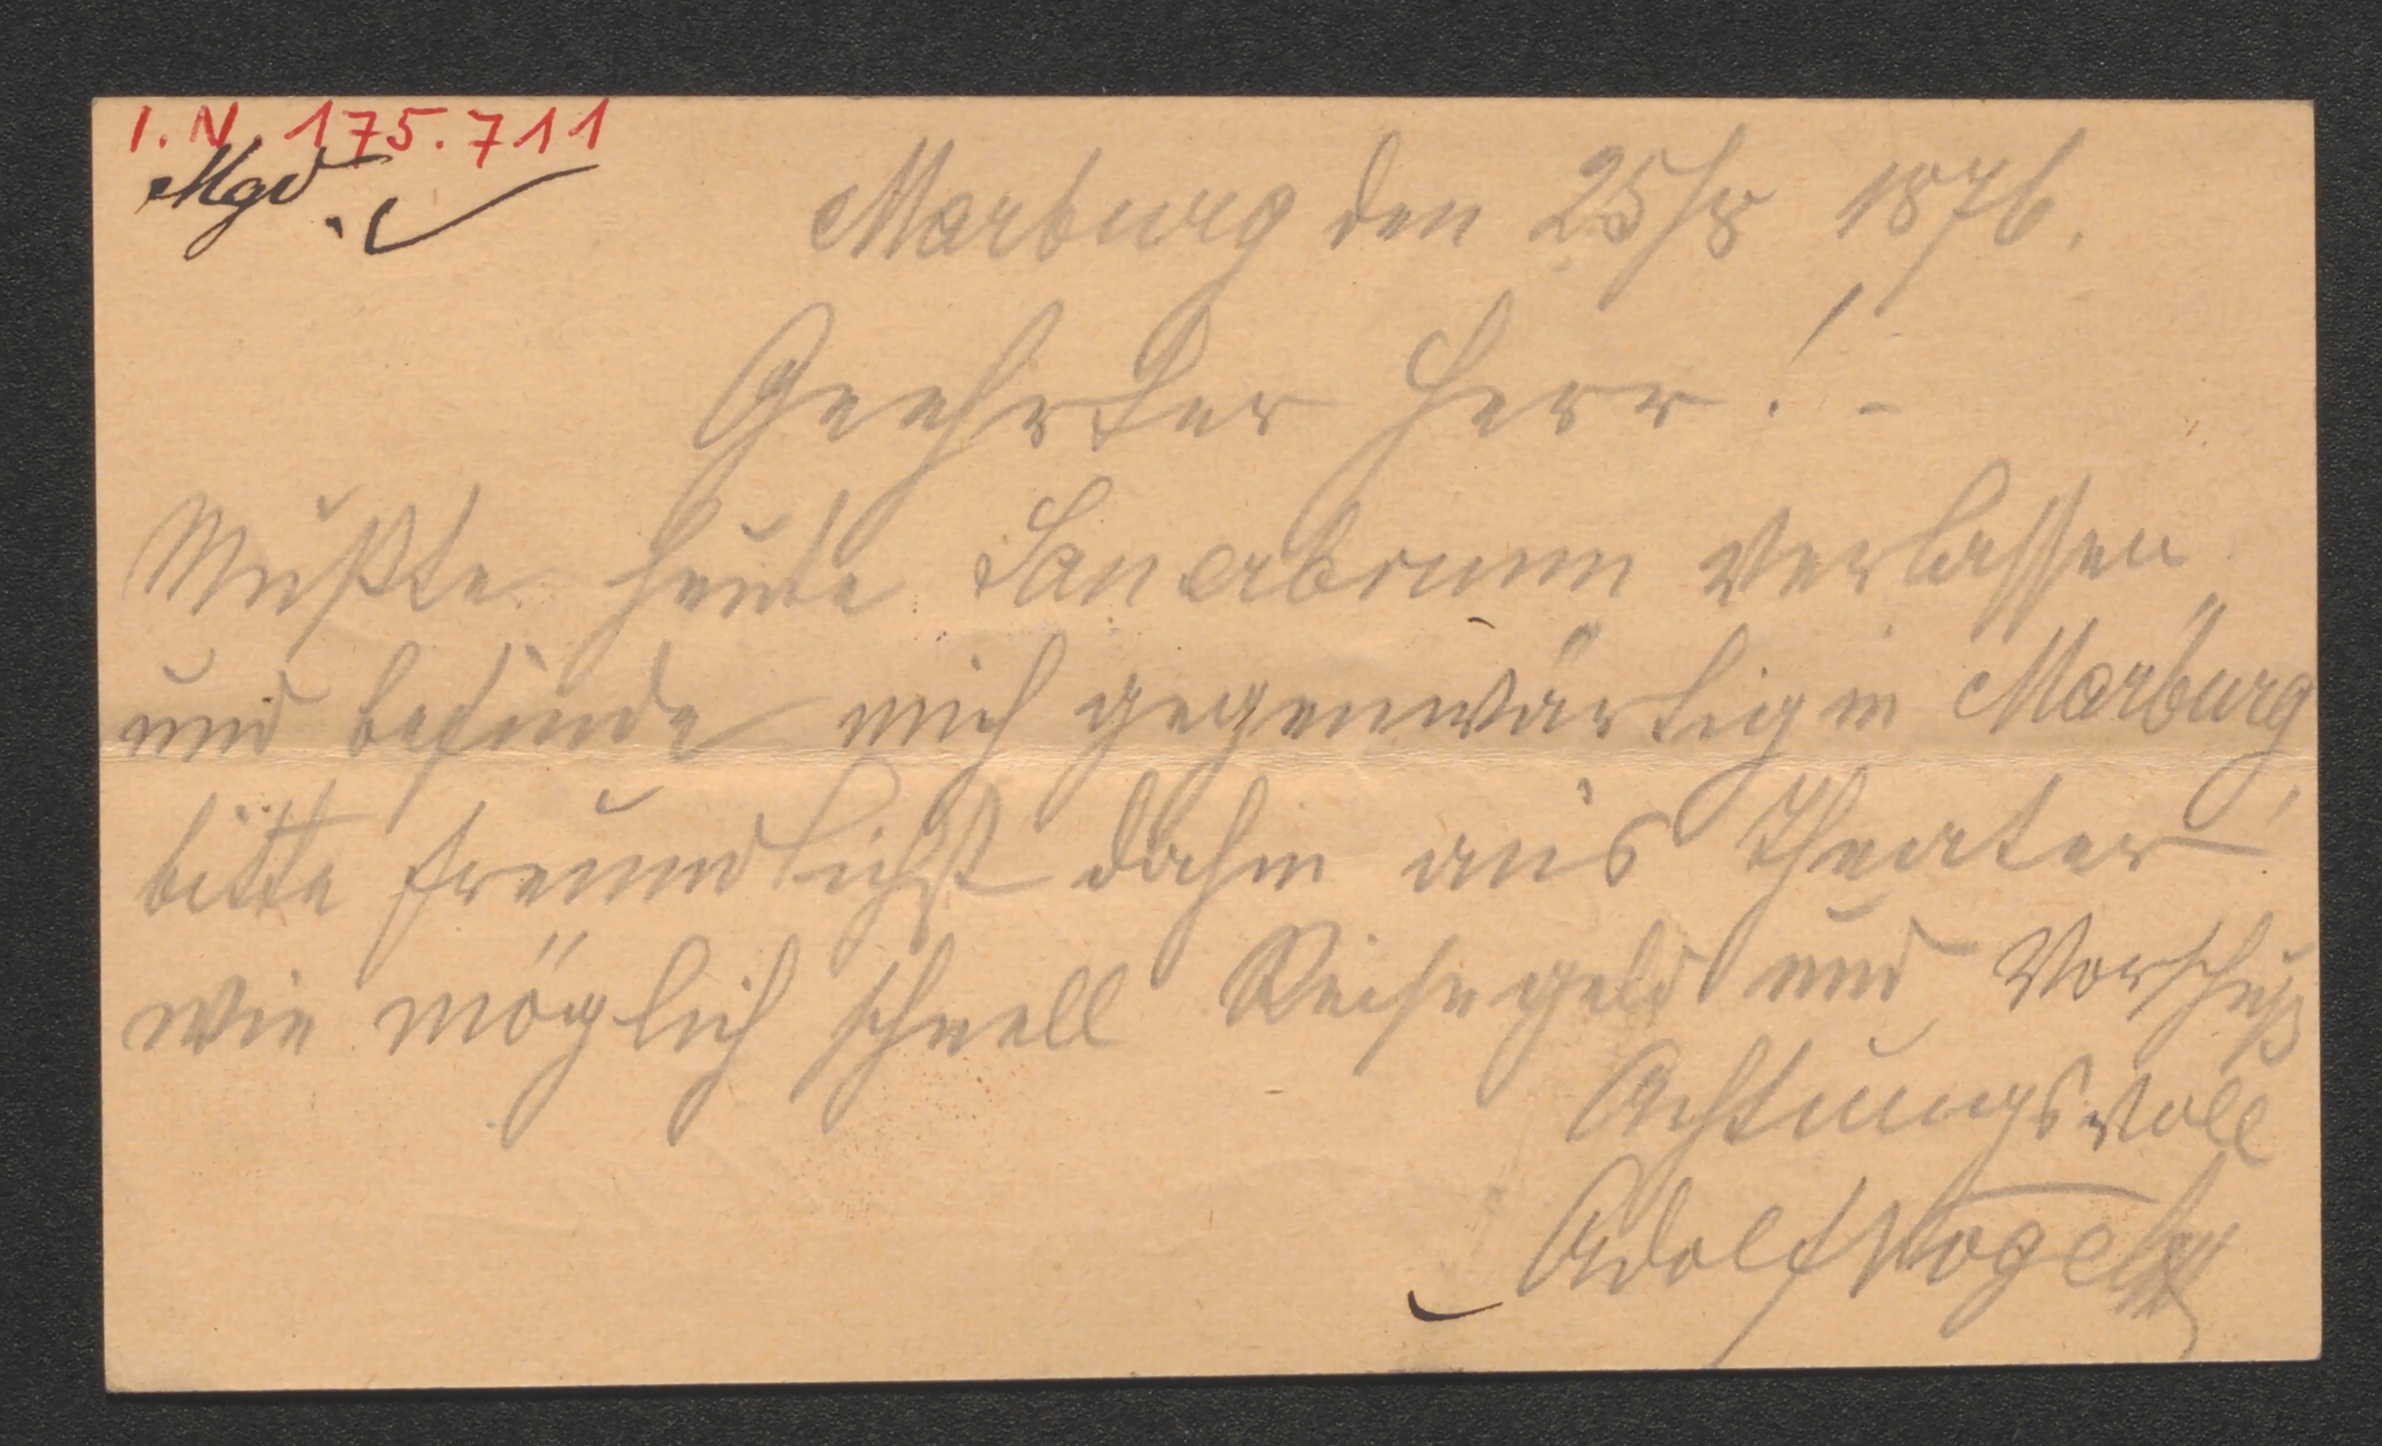 I.N. 175.711
Marburg den 25/8 1876.
Geehrter Herr! -
Mußte heute Sauerbrunn verlassen
und befinde mich gegenwärtig in Marburg,
bitte freundlichst dahin ans Theater
wie möglich schnell Reisegeld und Vorschuß
Achtungsvoll
Adolf Vogel